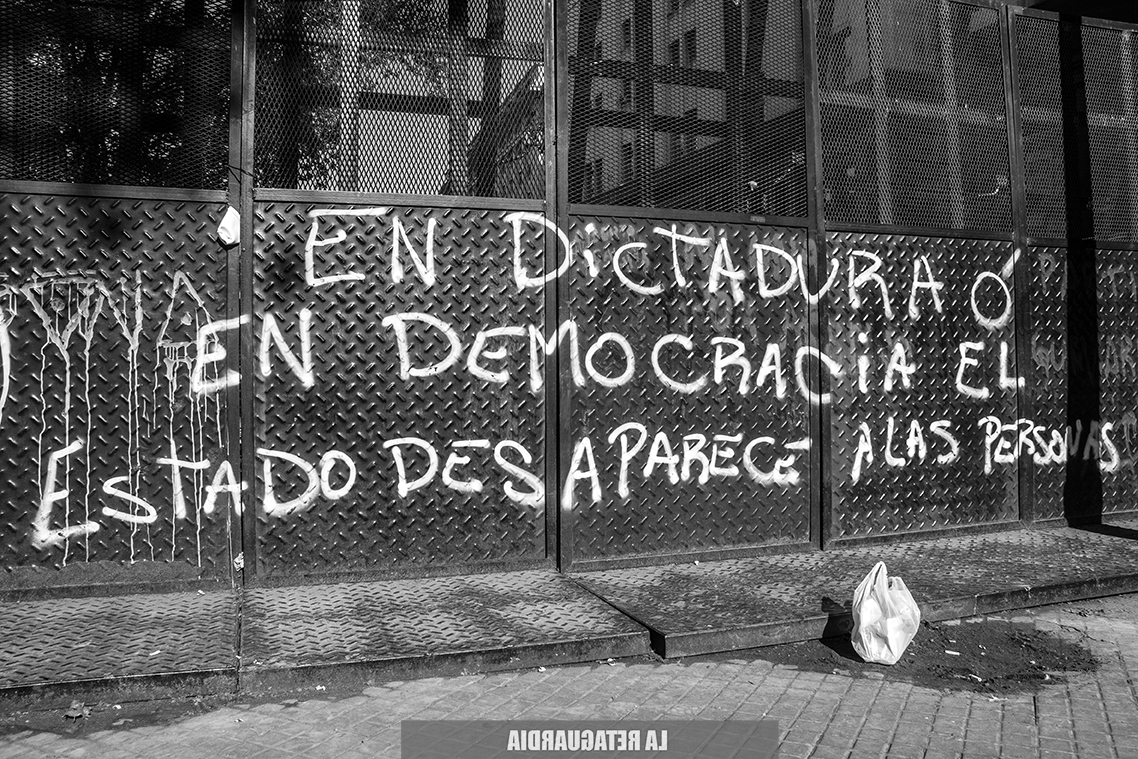 EN DiCTADURA Ó
EN DEMOCRACiA EL
ESTADO DESAPARECE A LAS PERSONAS
LA RETAGUARDIA